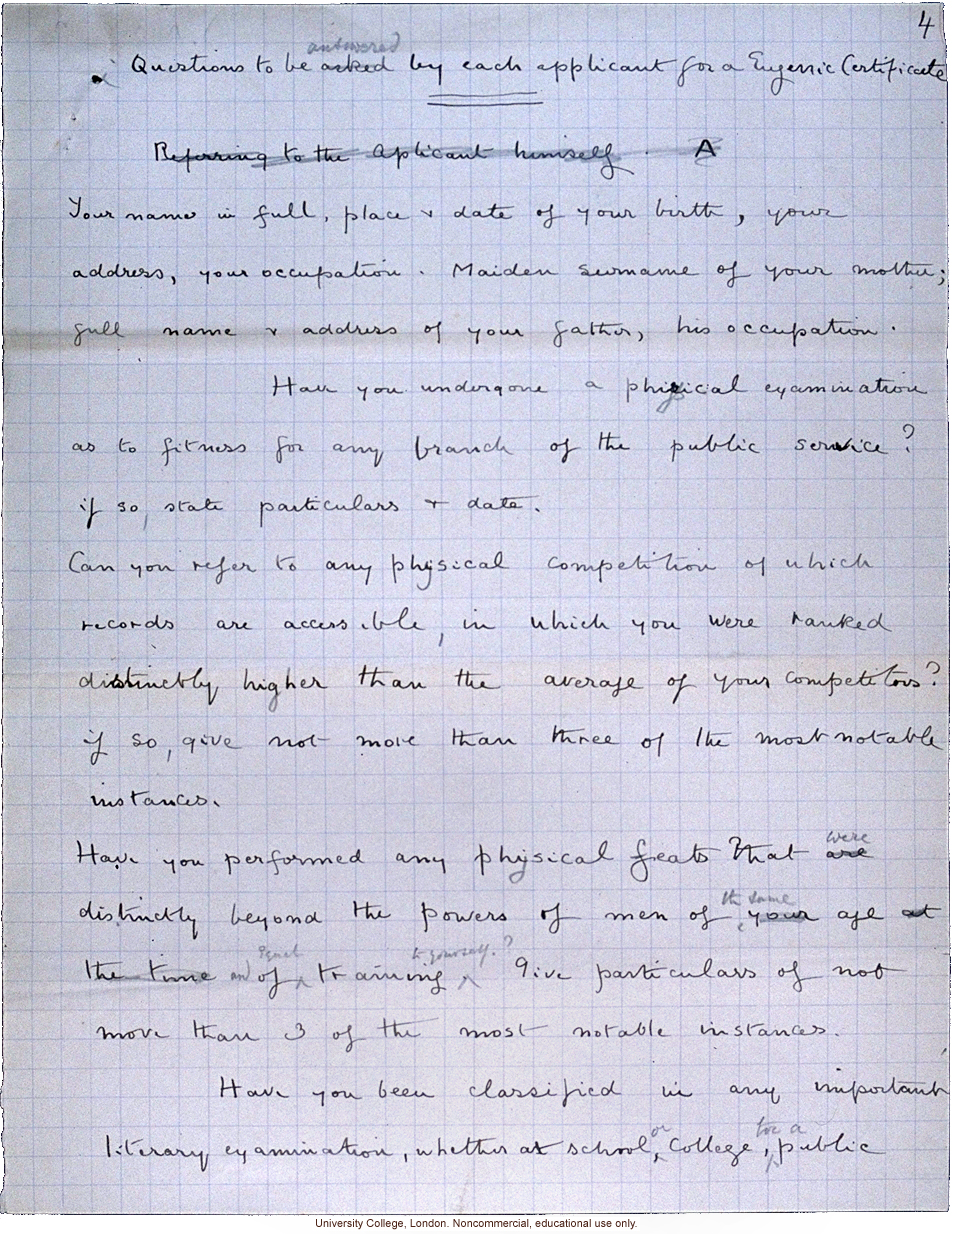 4
answered
Questions to be asked by each applicant for a Eugenic Certificate
Referring to the Applicant himself . A
Your name in full, place & date of your birth, your
address, your occupation. Maiden surname of your mother;
full name & address of your father, his occupation.
Have you undergone a physical examination
as to fitness for any branch of the public service?
if so, state particulars & date.
Can you refer to any physical competition of which
records are accessible, in which you were ranked
distinctly higher than the average of your competitors?
if so, give not more than three of the most notable
instances.
were
Have you performed any physical feats that are
the same
distinctly beyond the powers of men of your age at
equal to yourself.?
the time and of training Give particulars of not
more than 3 of the most notable instances.
Have you been classified in any important
or for a
literary examination, whether at school, College, public
University College, London. Noncommercial, educational use only.